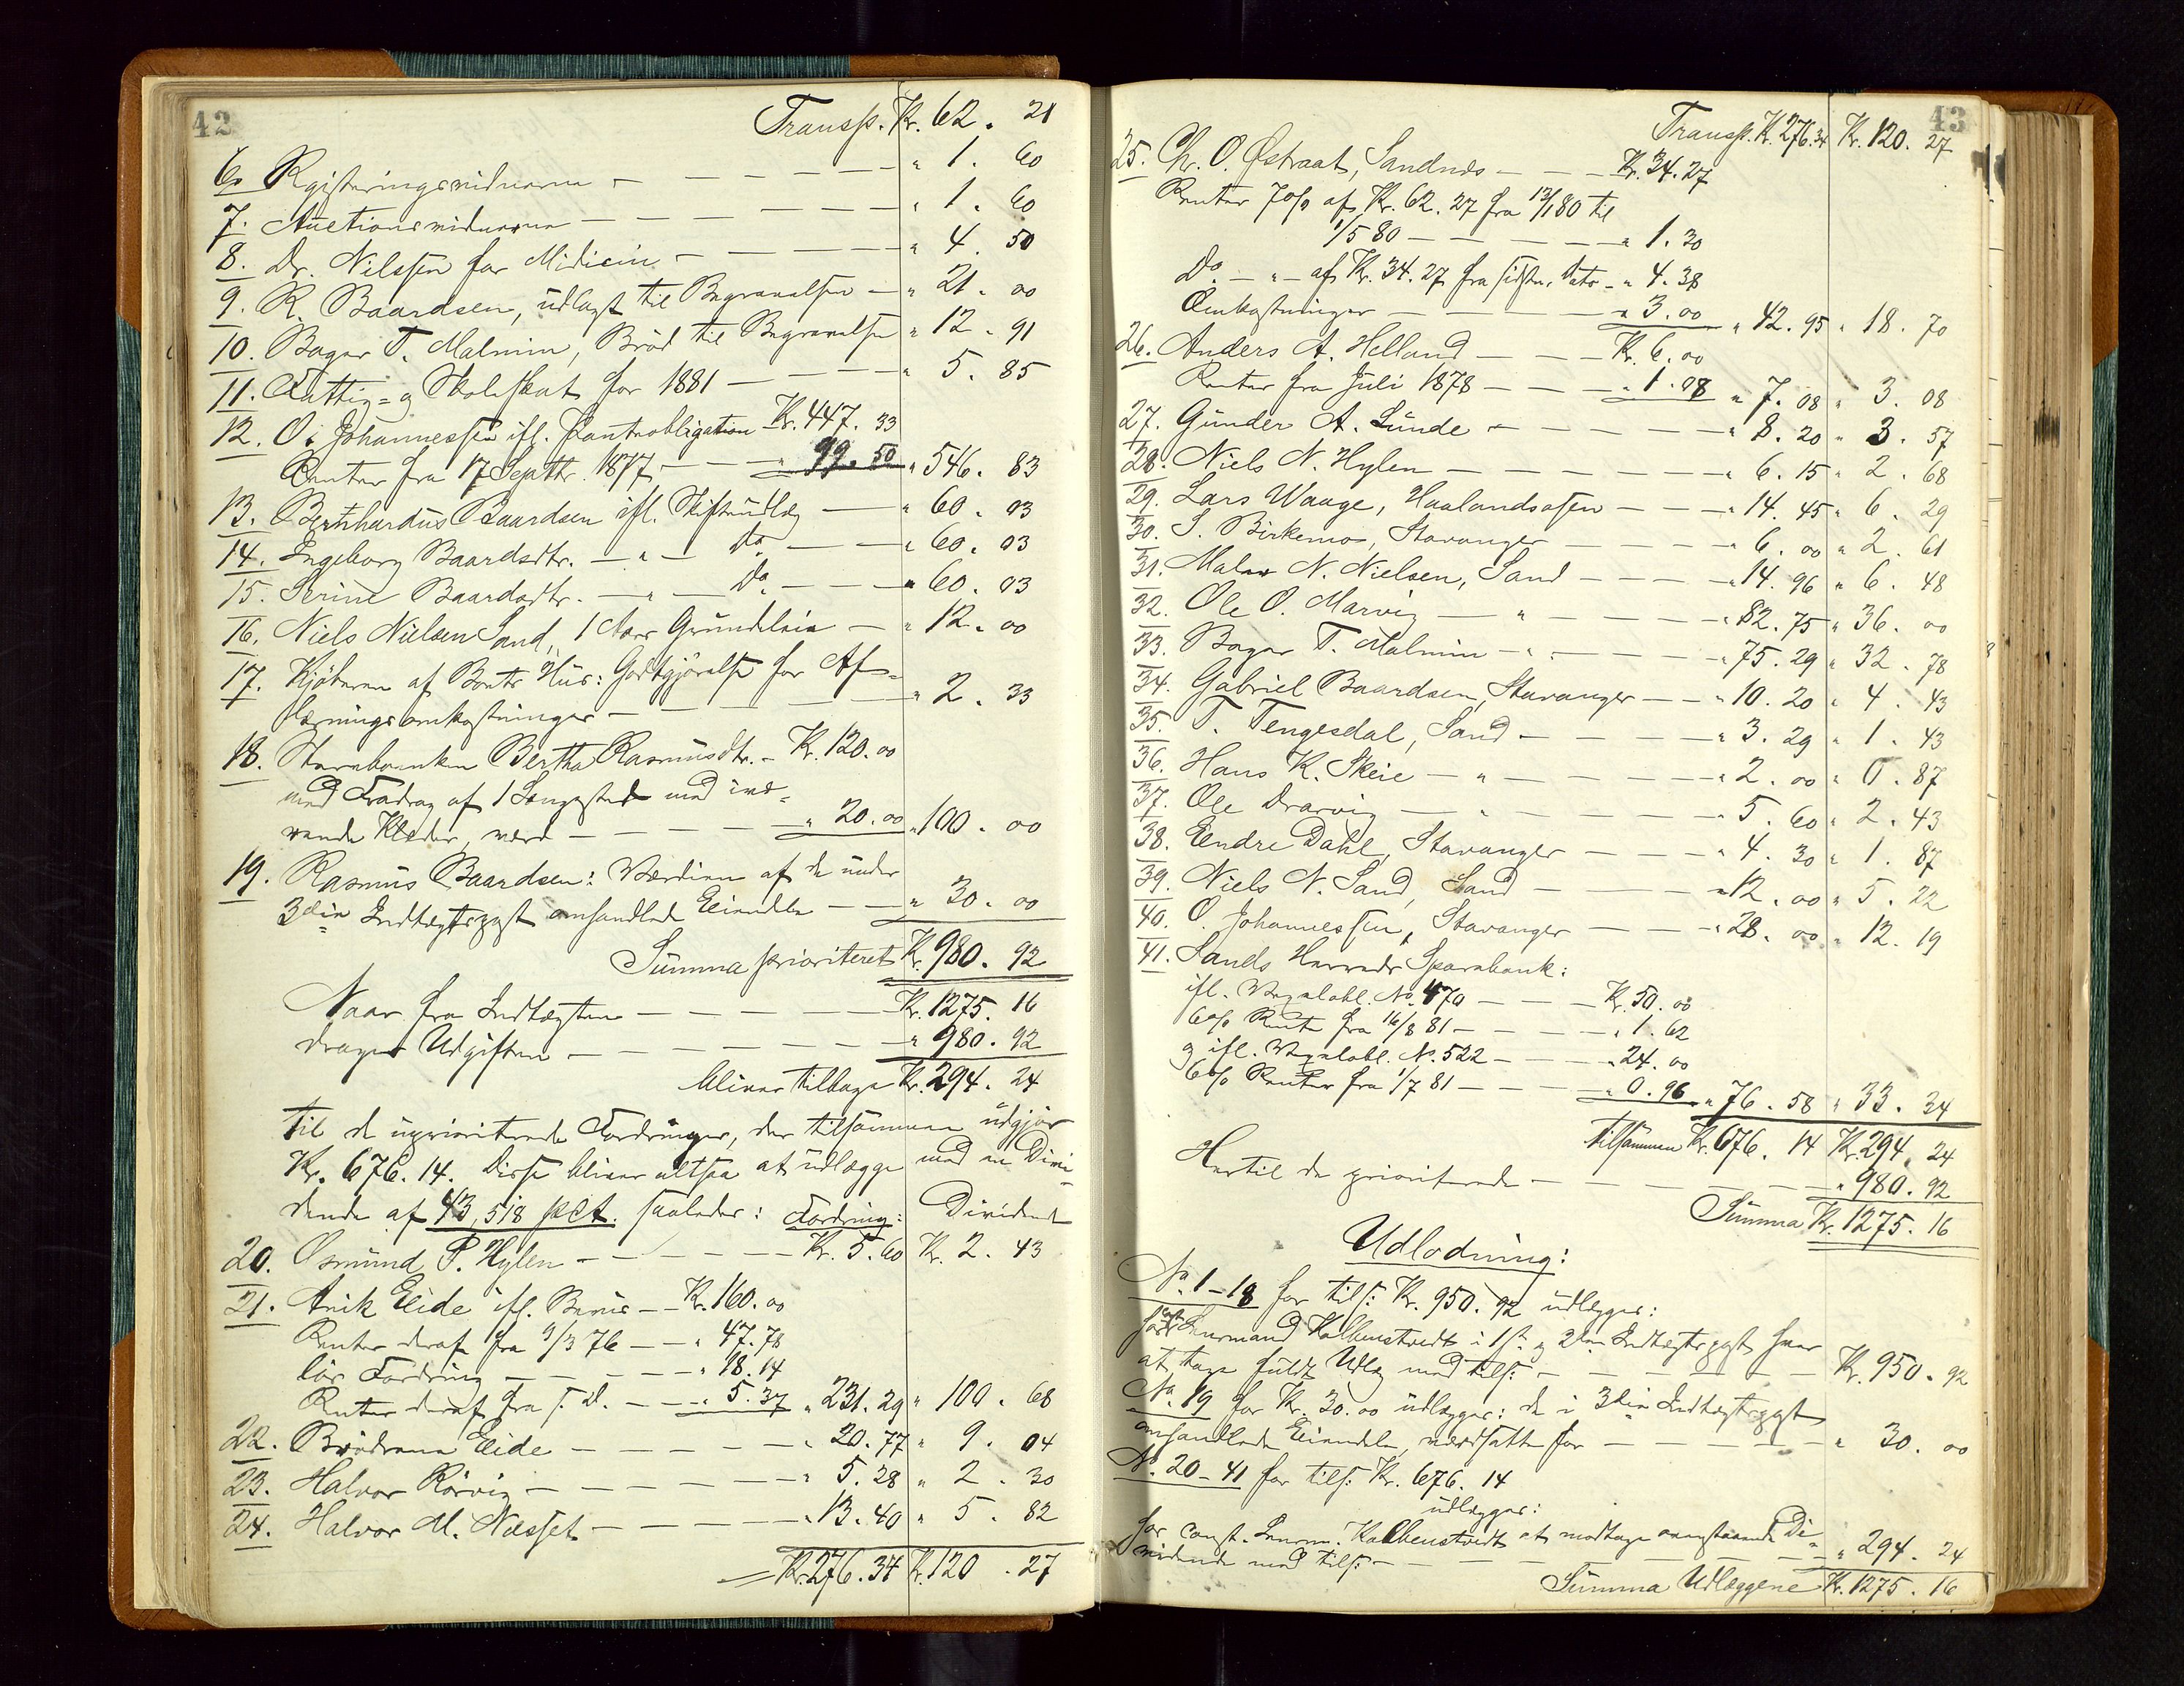 42
Transp. Kr. 62. 21
6. Registeringsvidnerne — " 1. 60
7. Auctionsvidnerne — " 1. 60
8. Dr. Nilssen for Medicin — " 4. 50
9. R. Baardsen, udlagt til Begravelsen — " 21. 00
10. Bager T. Malmin, Brød til Begravelsen " 12. 91
11. Fattig- og Skoleskat for 1881 — " 5. 85
12. O. Johannessen ifl. Panteobligation Kr. 447. 33
Renter fra 17 Septbr. 1877 — " 99. 50 " 546. 83
13. Bernhardus Baardsen ifl. Skifteudlæg — " 60. 03
14. Ingeborg Baardsdtr. — " — Do. — " 60. 03
15. Serine Baardsdtr. — " — Do. — " 60. 03
16. Niels Nielsen Sand, 1 Aars Grundleie — " 12. 00
17. Kjøberen af Boets Hus: Godtgjørelse for Af-
" 2. 33
færdningsomkostninger —
18. Stervboenken Bertha Rasmusdtr. - Kr. 120. 00
med Fradrag af 1 Sengested med
værende Klæder, værd — " 20. 00 " 100. 00
19. Rasmus Baardsen: Værdien af de under
3die Indtægtspost omhandlede Eiendele — " 30. 00
Summa prioriteret Kr. 980. 92
Naar fra Indtægten — Kr. 1275. 16
drages Udgiften — " 980. 92
bliver tilbage Kr. 294. 24
til de uprioriterede Fordringer, der tilsammen udgjør
Kr. 676. 14. Disse bliver altsaa at udlægge med en Divi-
dende af 43,518 pct. saaledes: Fordring: Dividende
20. Osmund P. Hylen — Kr. 5. 60 Kr. 2. 43
21. Anik Eide ifl. Bevis — Kr. 160. 00
Renter deraf fra 9/3 76 — " 47. 78
løs Fordring — " 18. 14
Renter deraf fra s. D. — " 5. 37 " 231. 29 " 100. 68
22. Brødrene Eide — " 20. 77 " 9. 04
23. Halvor Rørvig — " 5. 28 " 2. 30
24. Halvor M. Næsset — " 13. 40 " 5. 82
Kr. 276. 34 Kr. 120. 27
43
Transp. Kr. 276. 34 Kr. 120. 27
25. Chr. O. Østraat, Sandnæs — Kr. 34. 27
Renter 7% af Kr. 62. 27 fra 13/1 80 til
1/5 80 — " 1. 30
Do. — " — af Kr. 34. 27 fra sidstn. Dato — " 4. 38
Omkostninger — " 3. 00 " 42. 95 " 18. 70
26. Anders A. Helland — Kr. 6. 00
Renter fra Juli 1878 — " 1. 08 " 7. 08 " 3. 08
27. Gunder A. Lunde — " 8. 20 " 3. 57
28. Niels N. Hylen — " 6. 15 " 2. 68
29. Lars Waage, Haalandsosen — " 14. 45 " 6. 29
30. S. Birkemo, Stavanger — " 6. 00 " 2. 61
31. Maler N. Nielsen, Sand — " 14. 96 " 6. 48
32. Ole O. Marvig — " — " 82. 75 " 36. 00
33. Bager T. Malmin — " — " 75. 29 " 32. 78
34. Gabriel Baardsen, Stavanger — " 10. 20 " 4. 43
35. T. Tengesdal, Sand — " 3. 29 " 1. 43
36. Hans K. Skeie — " — " 2. 00 " 0. 87
37. Ole Drarvig — " — " 5. 60 " 2. 43
38. Eendre Dahl, Stavanger — " 4. 30 " 1. 87
39. Niels N. Sand, Sand — " 12. 00 " 5. 22
40. O. Johannessen, Stavanger — " 28. 00 " 12. 19
41. Sands Herreds Sparebank:
ifl. Vexelobl. No. 470 — Kr. 50. 00
6% Rente fra 16/8 81 — " 1. 62
og ifl. Vexelobl. No. 522 — " 24. 00
6% Renter fra 1/7 81 — " 0. 96 " 76. 58 " 33. 34
Tilsammen Kr. 676. 14 Kr. 294. 24
Hertil de prioriterede — " 980. 92
Summa Kr. 1275. 16
Udlodning:
No. 1-18 for tils: Kr. 950. 92 udlægges:
Lensmand Kolbenstvedt i 1ste og 2den Indtægtspost som
at tage fuldt Udlæg med tils: — Kr. 950. 92
No. 19 for Kr. 30. 00 udlægges: de i 3die Indtægtspost
omhandlede Eiendele, værdsatte for — " 30. 00
No. 20-41 for tils: Kr. 676. 14
udlægges:
hos Const. Lensm. Kolbenstvedt at modtage ovenstaaende Di-
vidende med tils: — " 294. 24
Summa Udlæggene Kr. 1275. 16